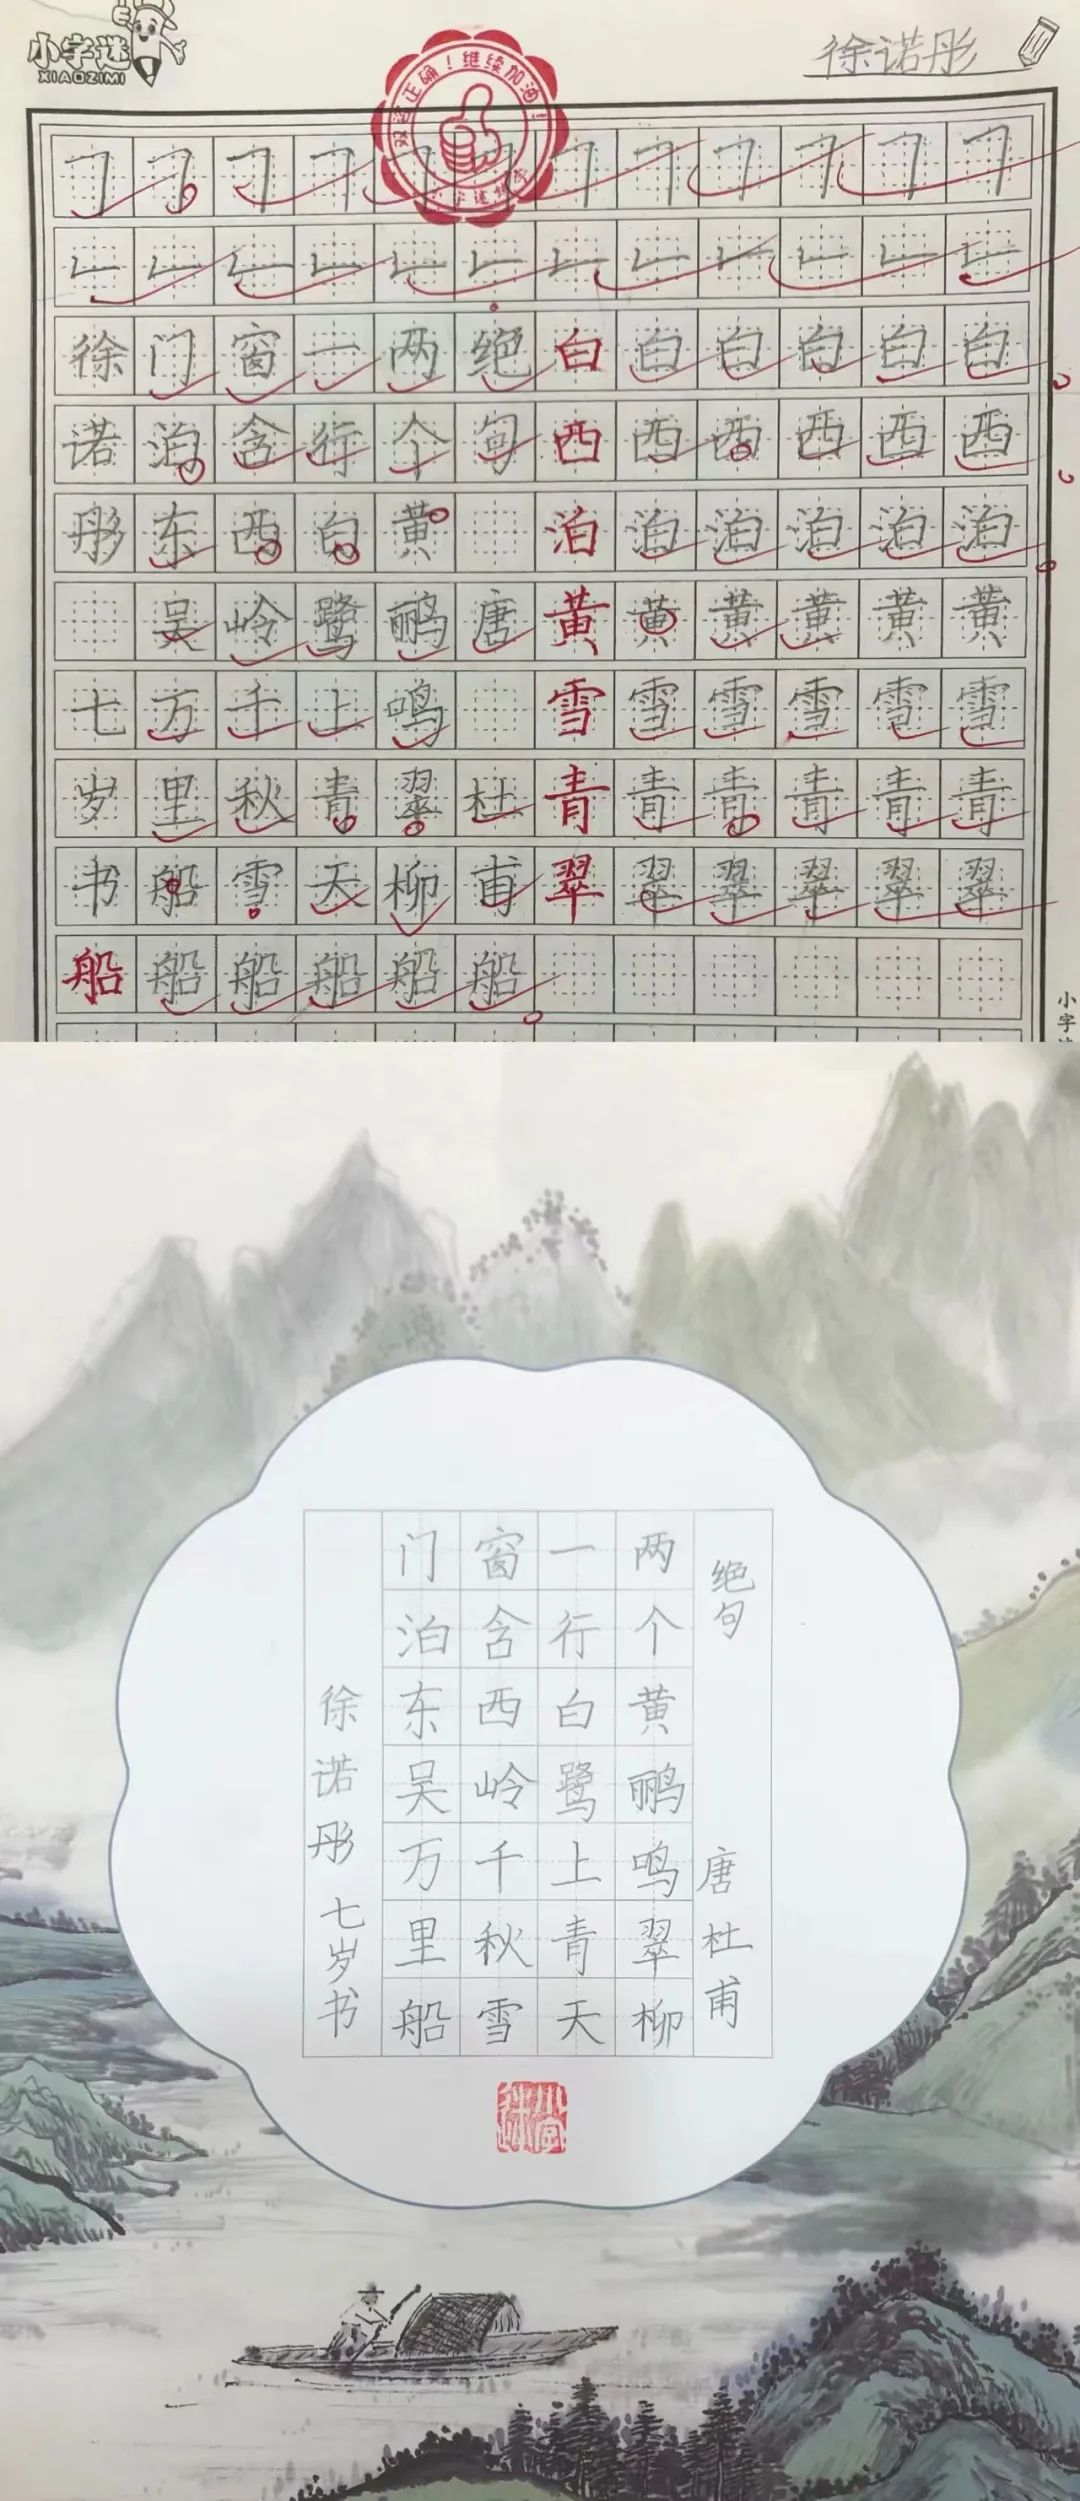 小字迷
XIAOZIMI
双姿正确！继续加油！
徐诺彤
徐门窗一两绝白白白白白白
诺泊含行个句西西西西西西
彤东西白黄泊泊泊泊泊泊
吴岭鹭鹂唐黄黄黄黄黄黄
七万千上鸣雪雪雪雪雪雪
岁里秋青翠杜青青青青青青
书船雪天柳甫翠翠翠翠翠翠
船船船船船船
小字迷
绝句
唐杜甫
两个黄鹂鸣翠柳
一行白鹭上青天
窗含西岭千秋雪
门泊东吴万里船
徐诺彤七岁书
小字迷